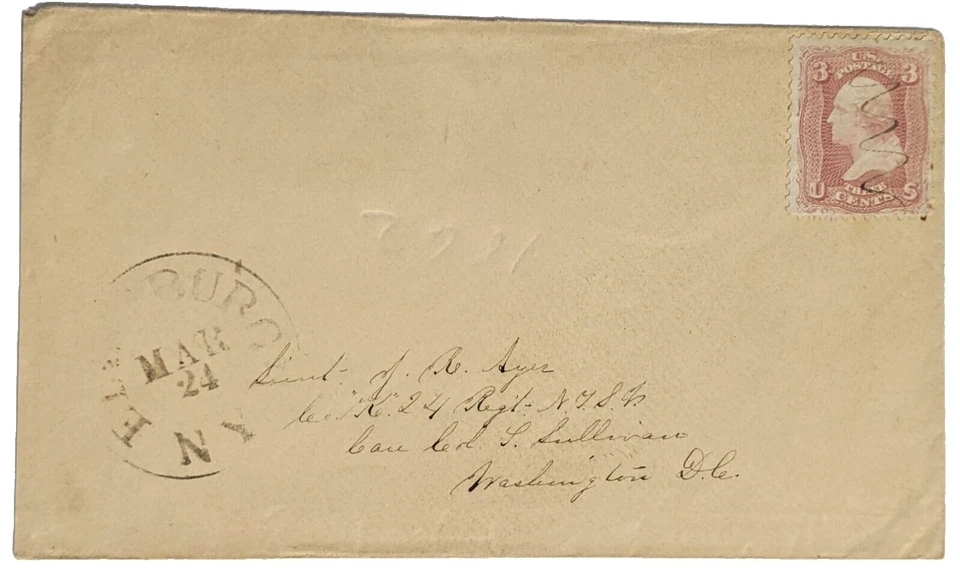 3 U.S. 3
POSTAGE
U THREE S
CENTS
MAR
24
N Y
Lieut. J. R. Ayer
Co. "K." 24 Regt. N.Y.S.V.
Care Col. T. Sullivan
Washington D.C.